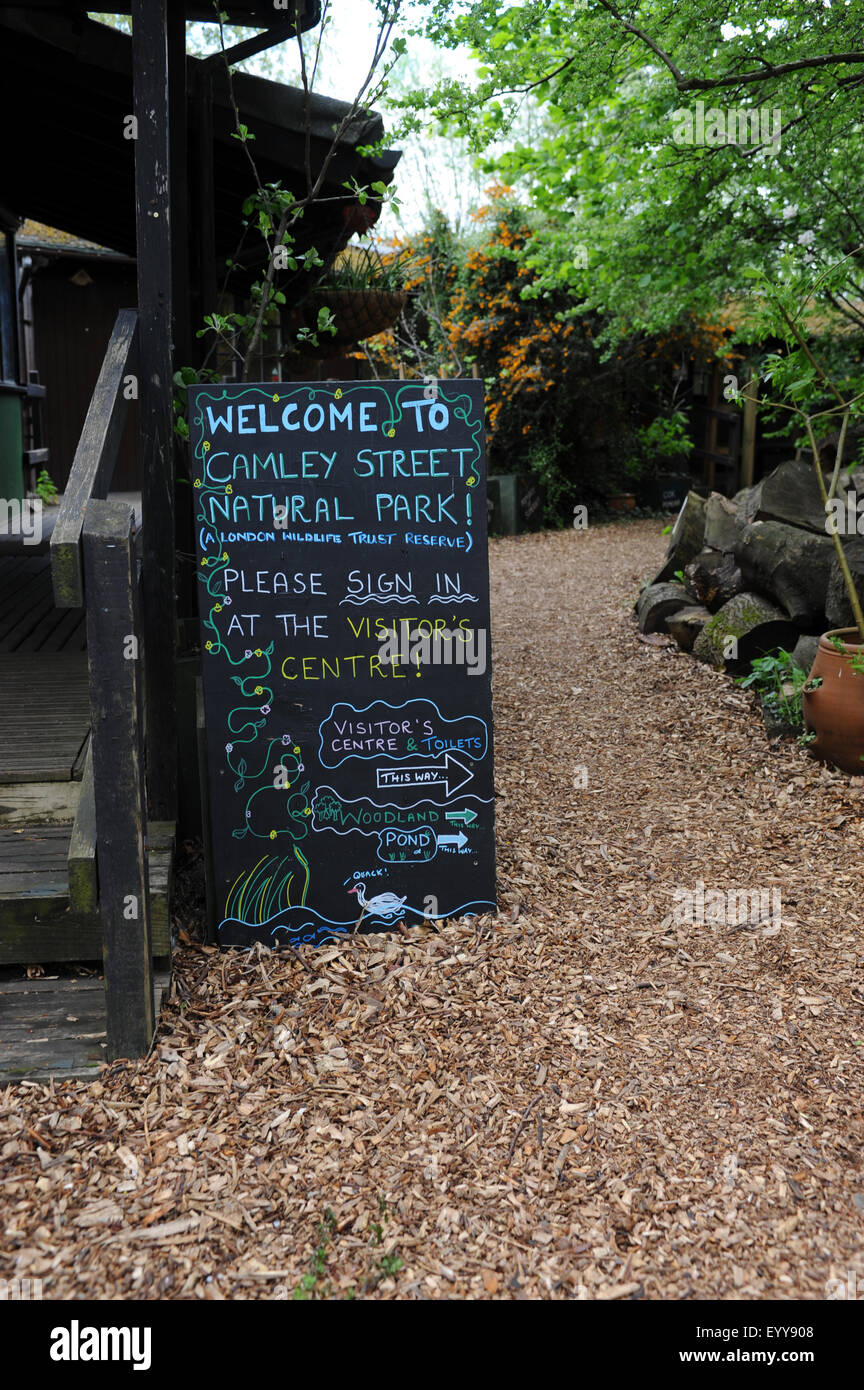 WELCOME TO
CAMLEY STREET
NATURAL PARK!
(A LONDON WILDLIFE TRUST RESERVE)
PLEASE SIGN IN
AT THE VISITOR'S
CENTRE!
VISITOR'S
CENTRE & TOILETS
THIS WAY...
WOODLAND
THIS WAY...
POND
THIS WAY...
QUACK!
alamy stock photo
EYY908
www.alamy.com